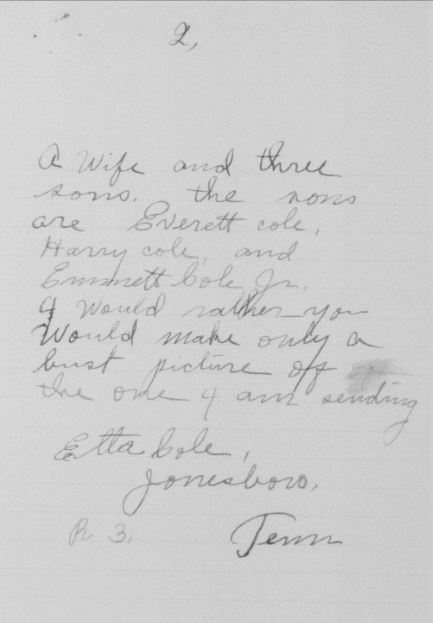 2,
A Wife and three
sons. the sons
are Everett cole,
Harry cole, and
Emmett Cole Jr.
I would rather you
Would make only a
bust picture of
the one I am sending
Etta Cole,
Jonesboro,
R 3. Tenn